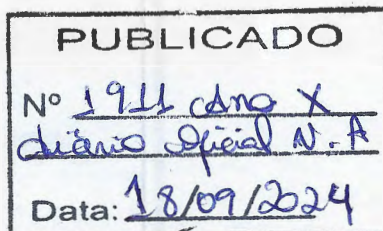 PUBLICADO
Nº 1911 Ano X
diário Oficial N. A
Data: 18/09/2024